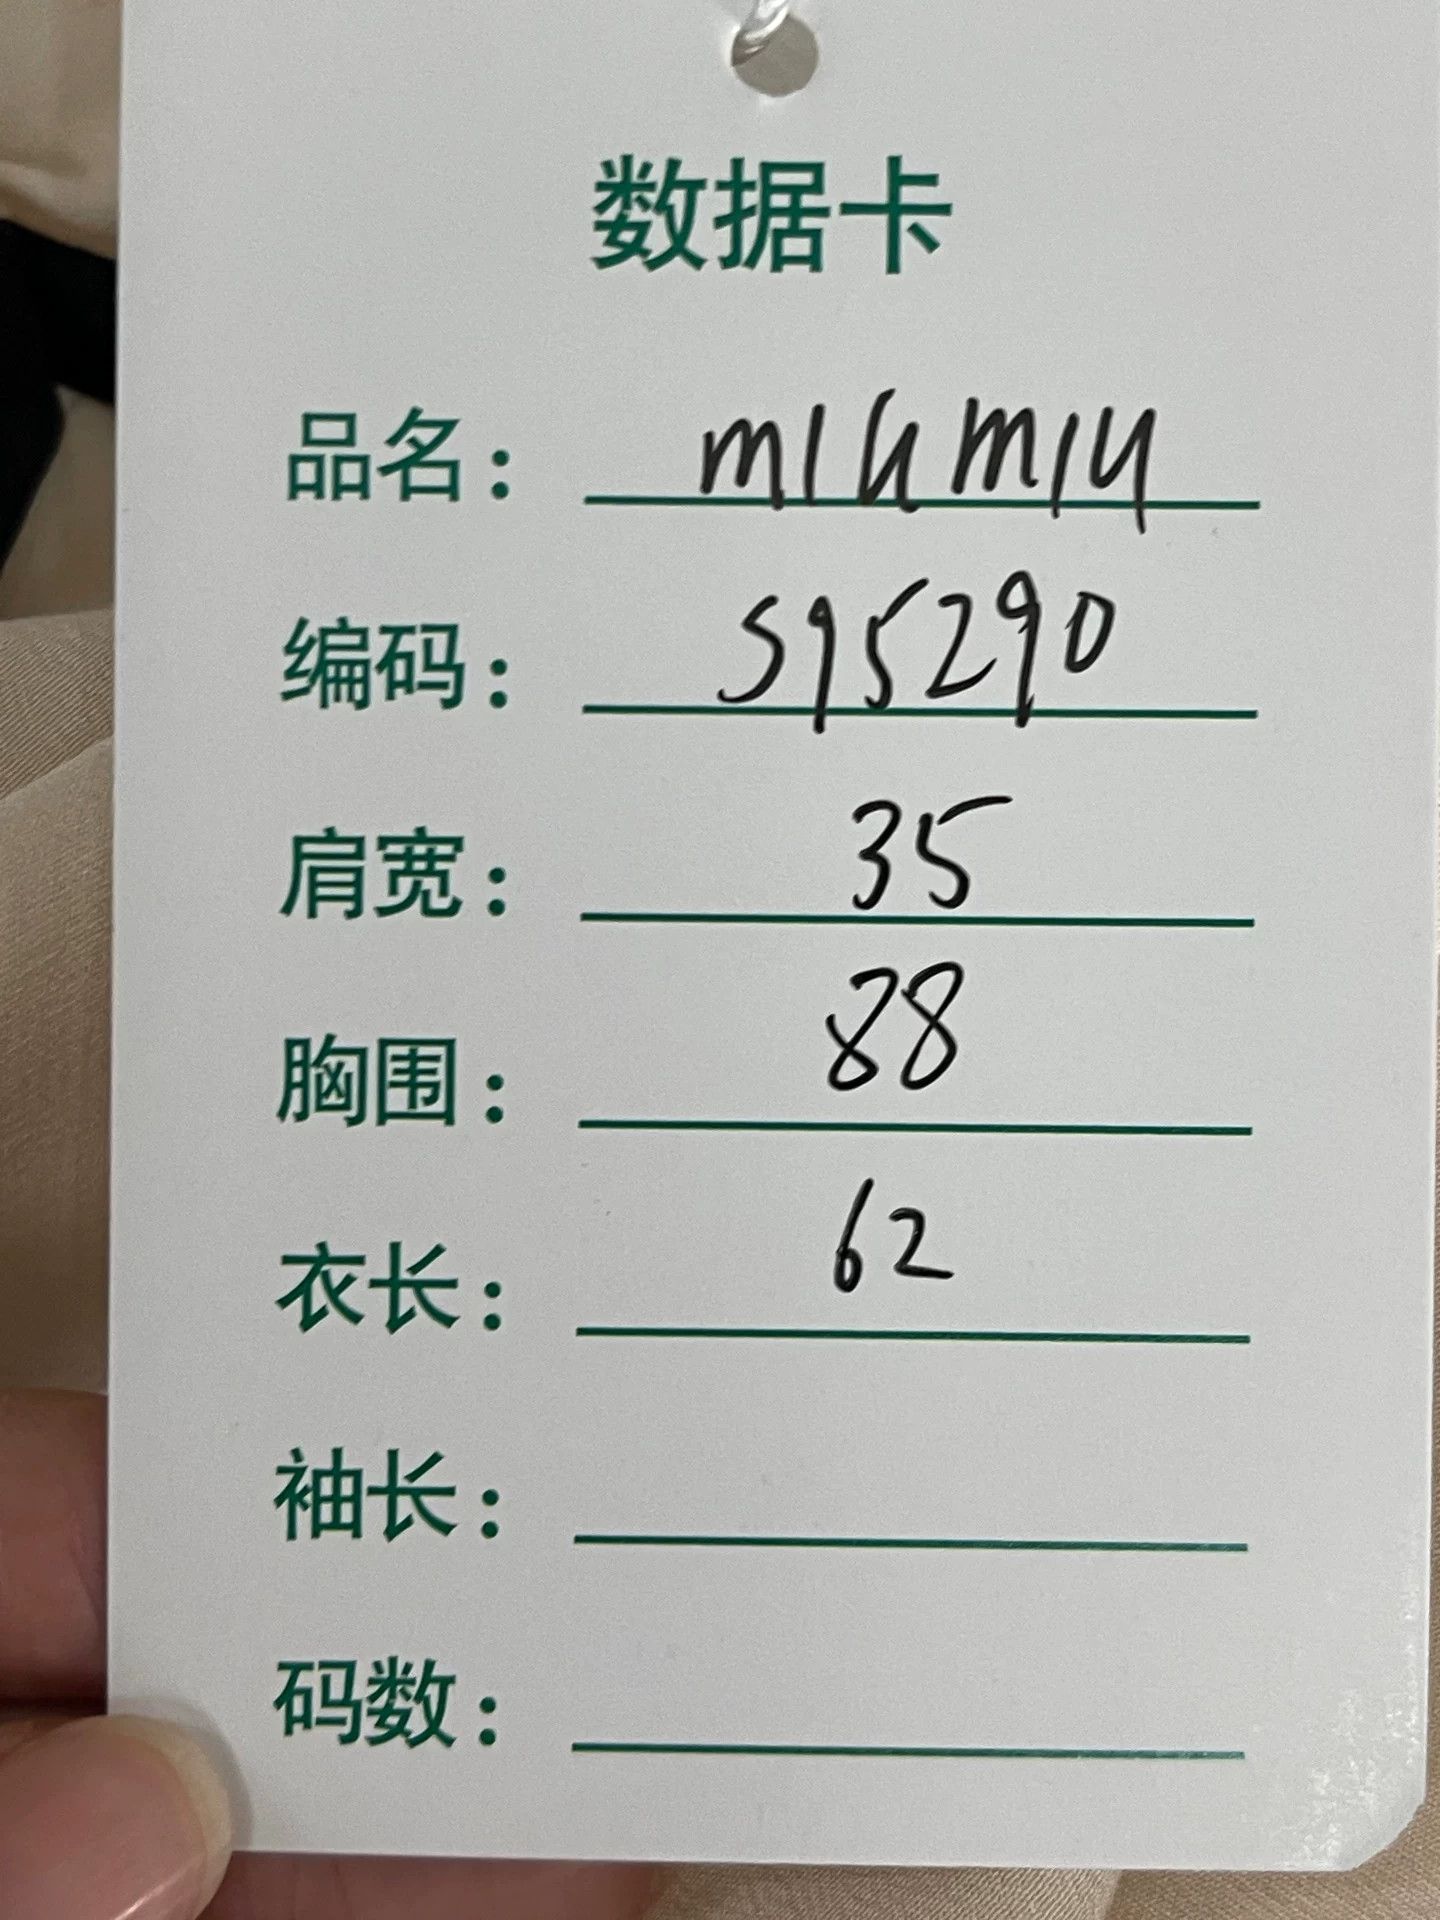 数据卡
品名： miumiu
编码： S95290
肩宽： 35
胸围： 88
衣长： 62
袖长：
码数：